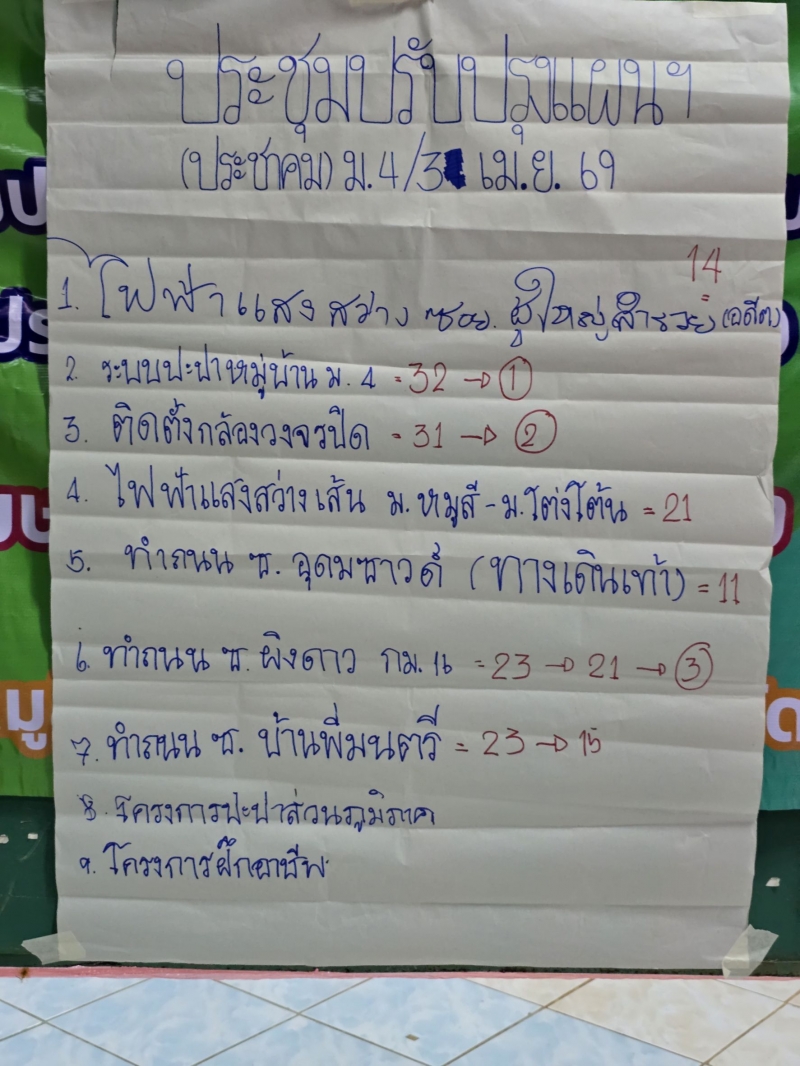 ประชุมปรับปรุงแผนฯ
(ประชาคม) ม.4/3 เม.ย. 69
14
1. ไฟฟ้าแสงสว่าง ซอย. ผู้ใหญ่สำรวย (อดีต) =
2. ระบบปะปาหมู่บ้าน ม. 4 = 32 → ①
3. ติดตั้งกล้องวงจรปิด = 31 → ②
4. ไฟฟ้าแสงสว่างเส้น ม.หมูสี - ม.โต่งโต้น = 21
5. ทำถนน ซ. อุดมซาวด์ (ทางเดินเท้า) = 11
6. ทำถนน ซ. ผิงดาว กม. 16 = 23 → 21 → ③
7. ทำถนน ซ. บ้านพี่มนตรี = 23 → 15
8. โครงการปะปาส่วนภูมิภาค
9. โครงการฝึกอาชีพ